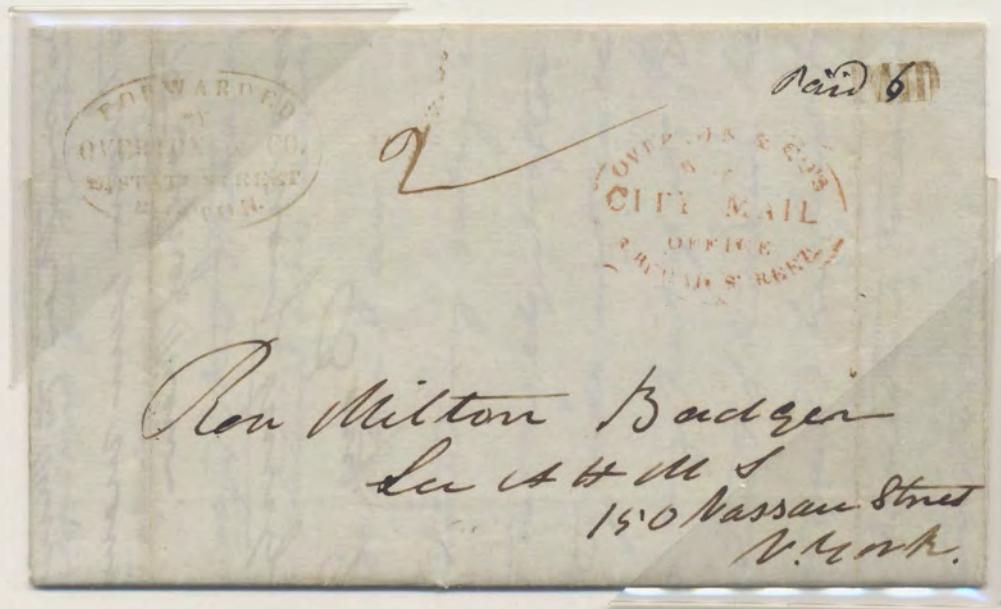 Paid 6
FORWARDED
BY
OVERTON & CO.
STATE STREET
BOSTON.
2
OVERTON & CO'S
CITY MAIL
OFFICE
BROAD STREET
Rev Milton Badger
Sec A H M S
150 Nassau Street
N. York.